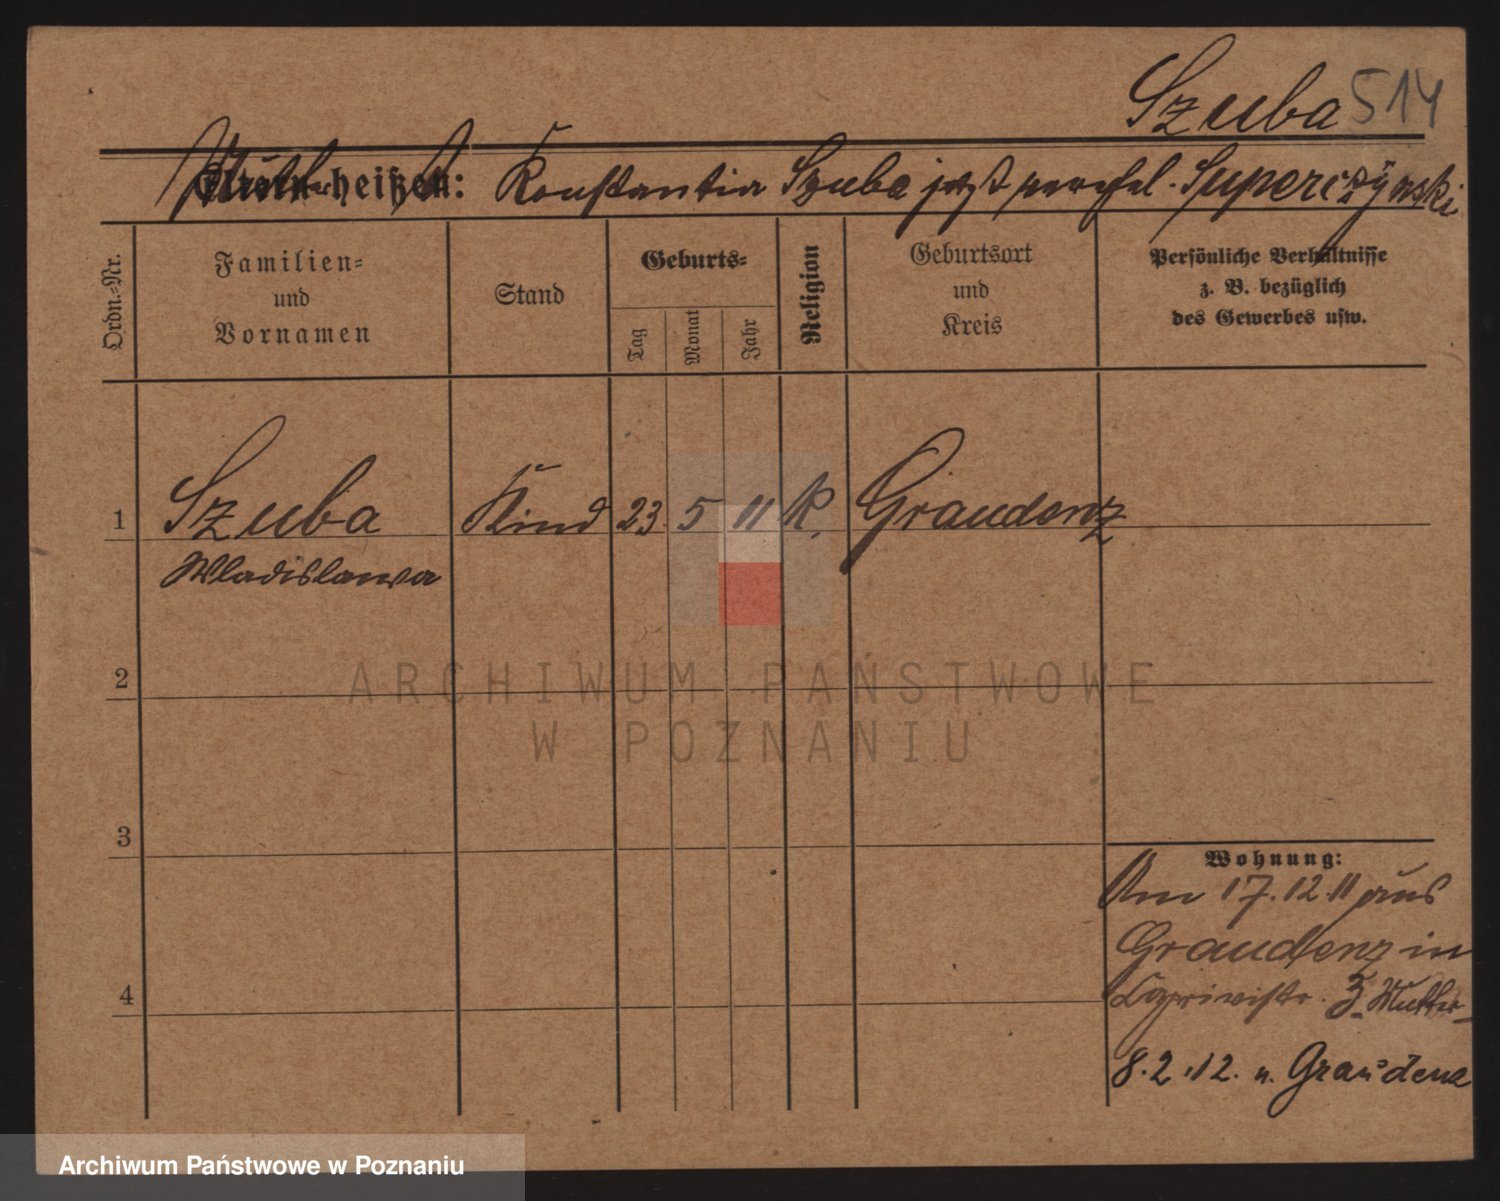 Szuba 514
Mutter heißt: Konstantia Szuba jetzt verehel. Superczÿnski
Ordn.-Nr.
Familien-
und
Vornamen
Stand
Geburts-
Tag
Monat
Jahr
Religion
Geburtsort
und
Kreis
Persönliche Verhältnisse
z. B. bezüglich
des Gewerbes usw.
1 Szuba Kind 23. 5 11 K. Graudenz
Wladislawa
2
3
4
Wohnung:
Am 17.12.11 aus
Graudenz in
Caprivistr. 3. Mutter
8.2.12. n. Graudenz
ARCHIWUM PAŃSTWOWE
W POZNANIU
Archiwum Państwowe w Poznaniu